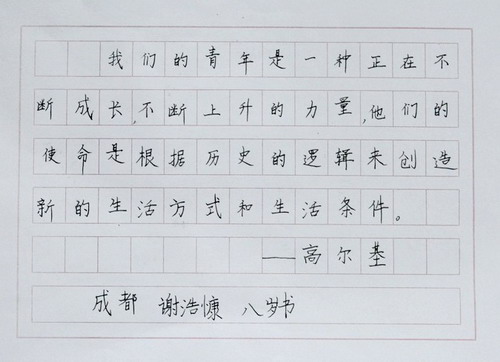 我们的青年是一种正在不
断成长,不断上升的力量,他们的
使命是根据历史的逻辑来创造
新的生活方式和生活条件。
——高尔基
成都 谢浩慷 八岁书